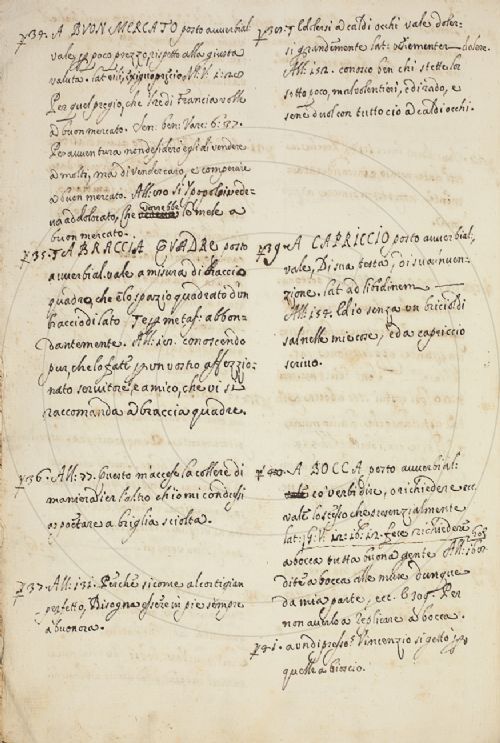 34. A BUON MERCATO posto avverbial:
vale, p poco prezzo, rispetto alla giusta
valuta. lat: vili, exiguo pretio,
Per quel pregio, che 'l re di Francia volle
a buon mercato. Sen: ben: Varc: 6: 37.
Per avventura non desidero egli di vendere
a molti, ma di vender caro, e comperare
a buon mercato. All:
addolorato, che darebbe lo mele a
buon mercato.
35. A BRACCIA QVADRE posto
avverbial. vale a misura di braccio
quadre, che è lo spazio quadrato d'un
braccio di lato metaf: abbon-
dantemente. All: conoscendo
pur, che lo fate p un vostro affezzio-
nato servitore, e amico, che vi si
raccomanda a braccia quadre.
36. All: 77. Questo m'accese la collera di
maniera
aspettare a briglia sciolta.
37. All: 132. Perchè siccome al cortigian
perfetto, bisogna essere in piè sempre
a buon'ora.
38. Dolersi a caldi occhi vale doler-
si grandemente lat: vehementer dolere.
All: 152. conosco ben chi stette
sotto poco, malvolentieri, e di rado, e
se ne duol con tutto ciò a caldi occhi.
39. A CAPRICCIO posto avverbial,
vale, Di sua testa, di sua inven-
zione. lat. ad libidinem
All: 157. Ed io senza un briciol di
sal nelle mie cose, ed a capriccio
scrivo.
40. A BOCCA posto avverbial:
co' verbi dire, o richiedere ecc.
vale lo stesso che presenzialmente
lat: G: V: 12: 16: 12. fece richiedere
a bocca tutta buona gente All:
dite a bocca alle muse dunque
da mia parte, ecc. E 309. Per
non averlo a replicare a bocca.
41. Vincenzio si gettò
quelle a biscio.